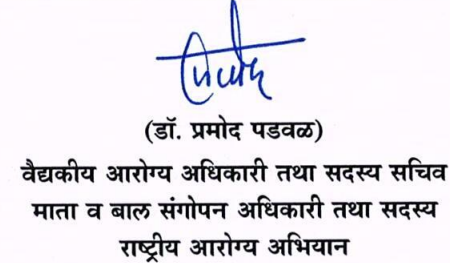 (डॉ. प्रमोद पडवळ)
वैद्यकीय आरोग्य अधिकारी तथा सदस्य सचिव
माता व बाल संगोपन अधिकारी तथा सदस्य
राष्ट्रीय आरोग्य अभियान